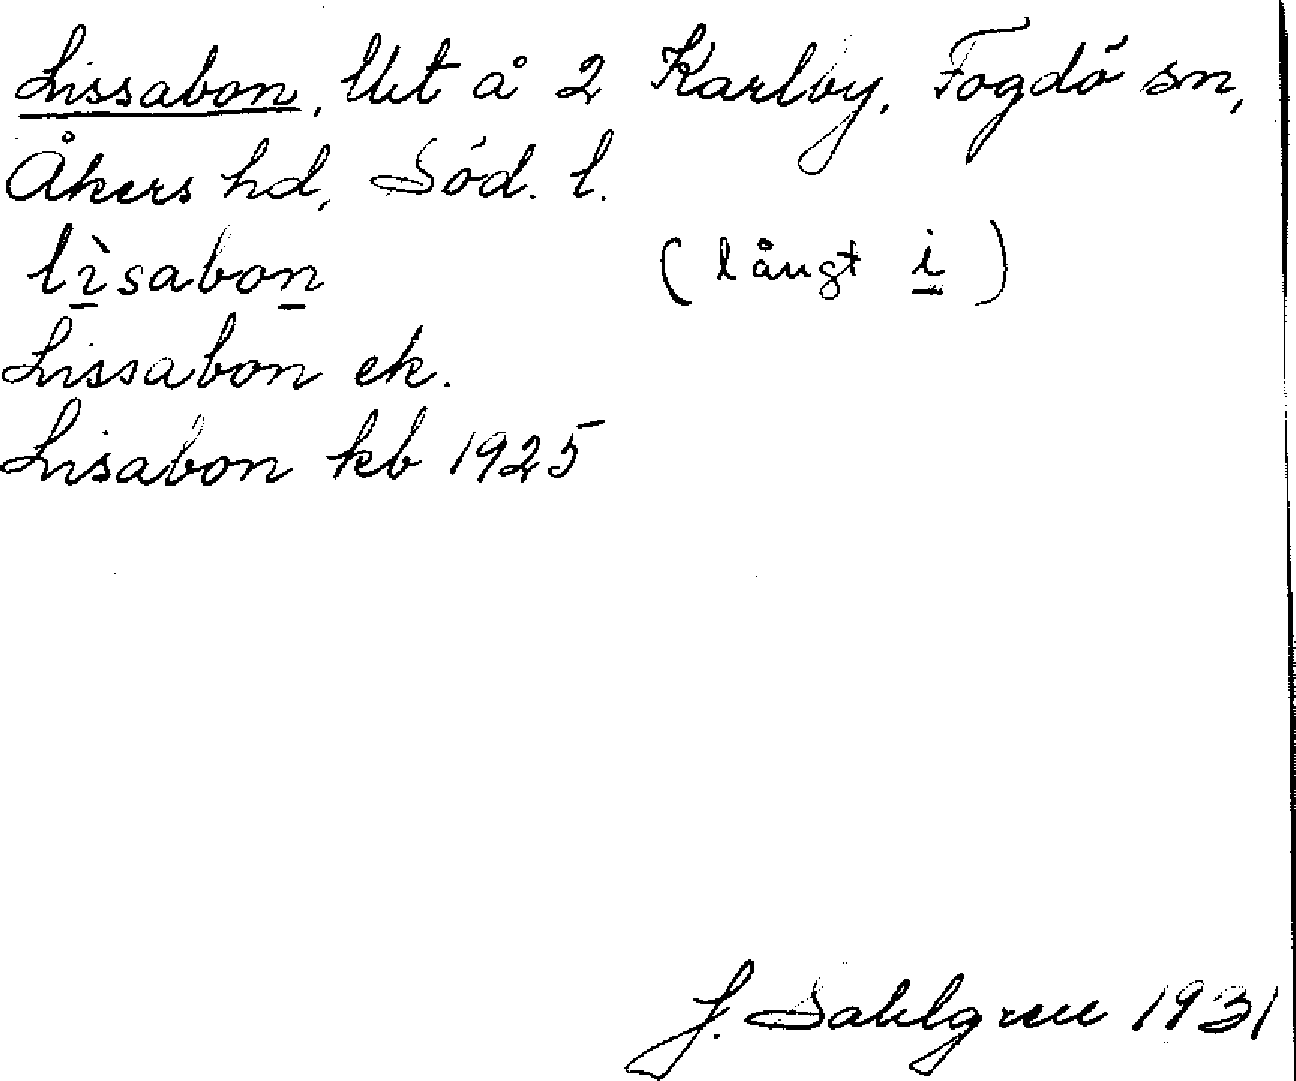 Lissabon, Utt å 2 Karlby, Fogdö sn,
Åkers hd, Söd. l.
lìsabon (långt i)
Lissabon ek.
Lisabon kb 1925
J. Sahlgren 1931